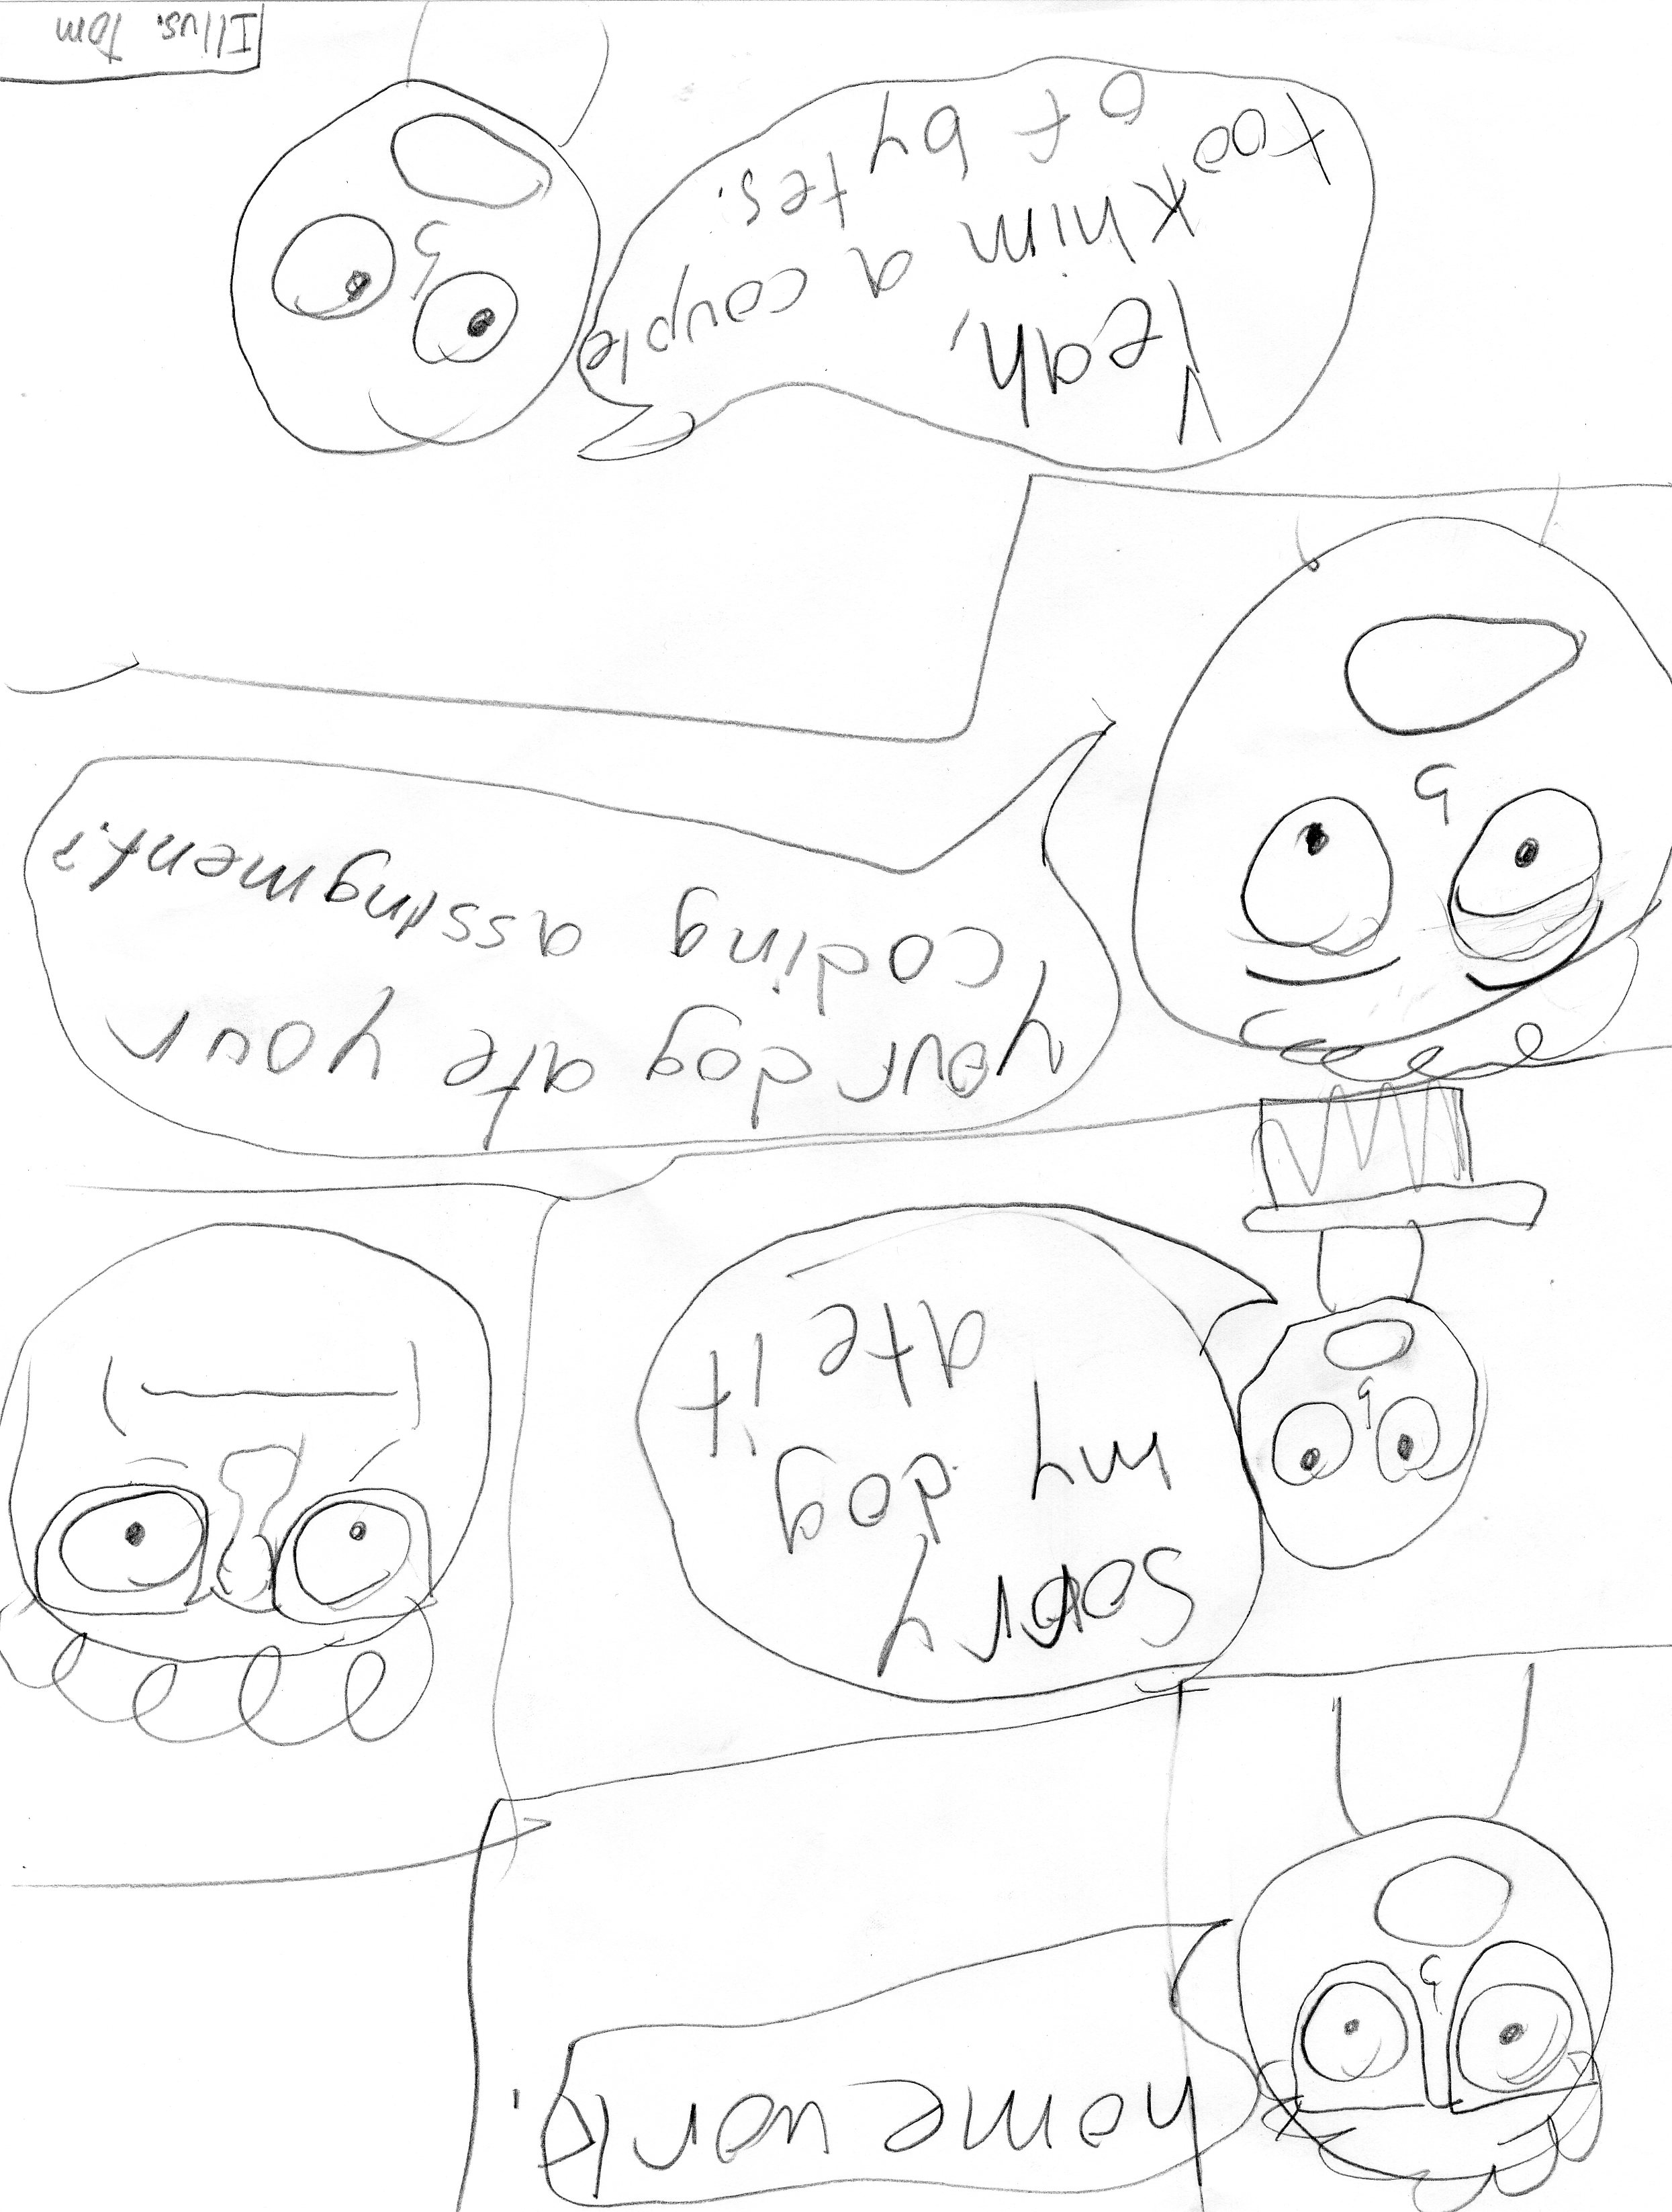 home work.
Sorry
my dog
ate it
your dog ate your
coding assingment?
Yeah,
took him a couple
of by tes.
Illus. Tom